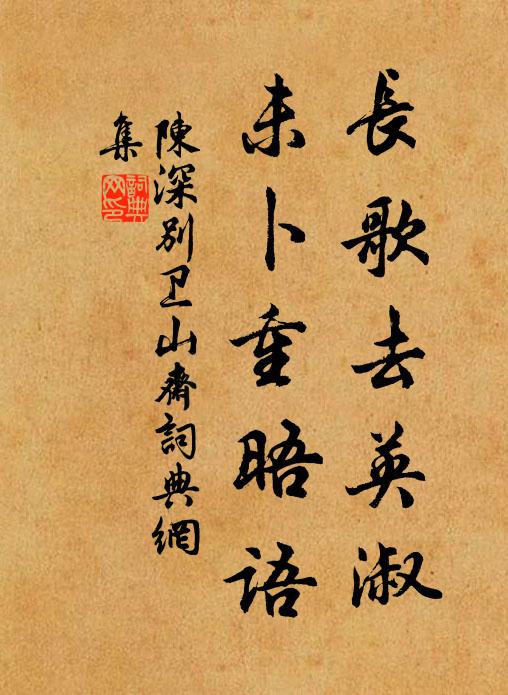 長歌去英淑
未卜重晤语
陳深别卫山齋詞典網
集
詞典網印